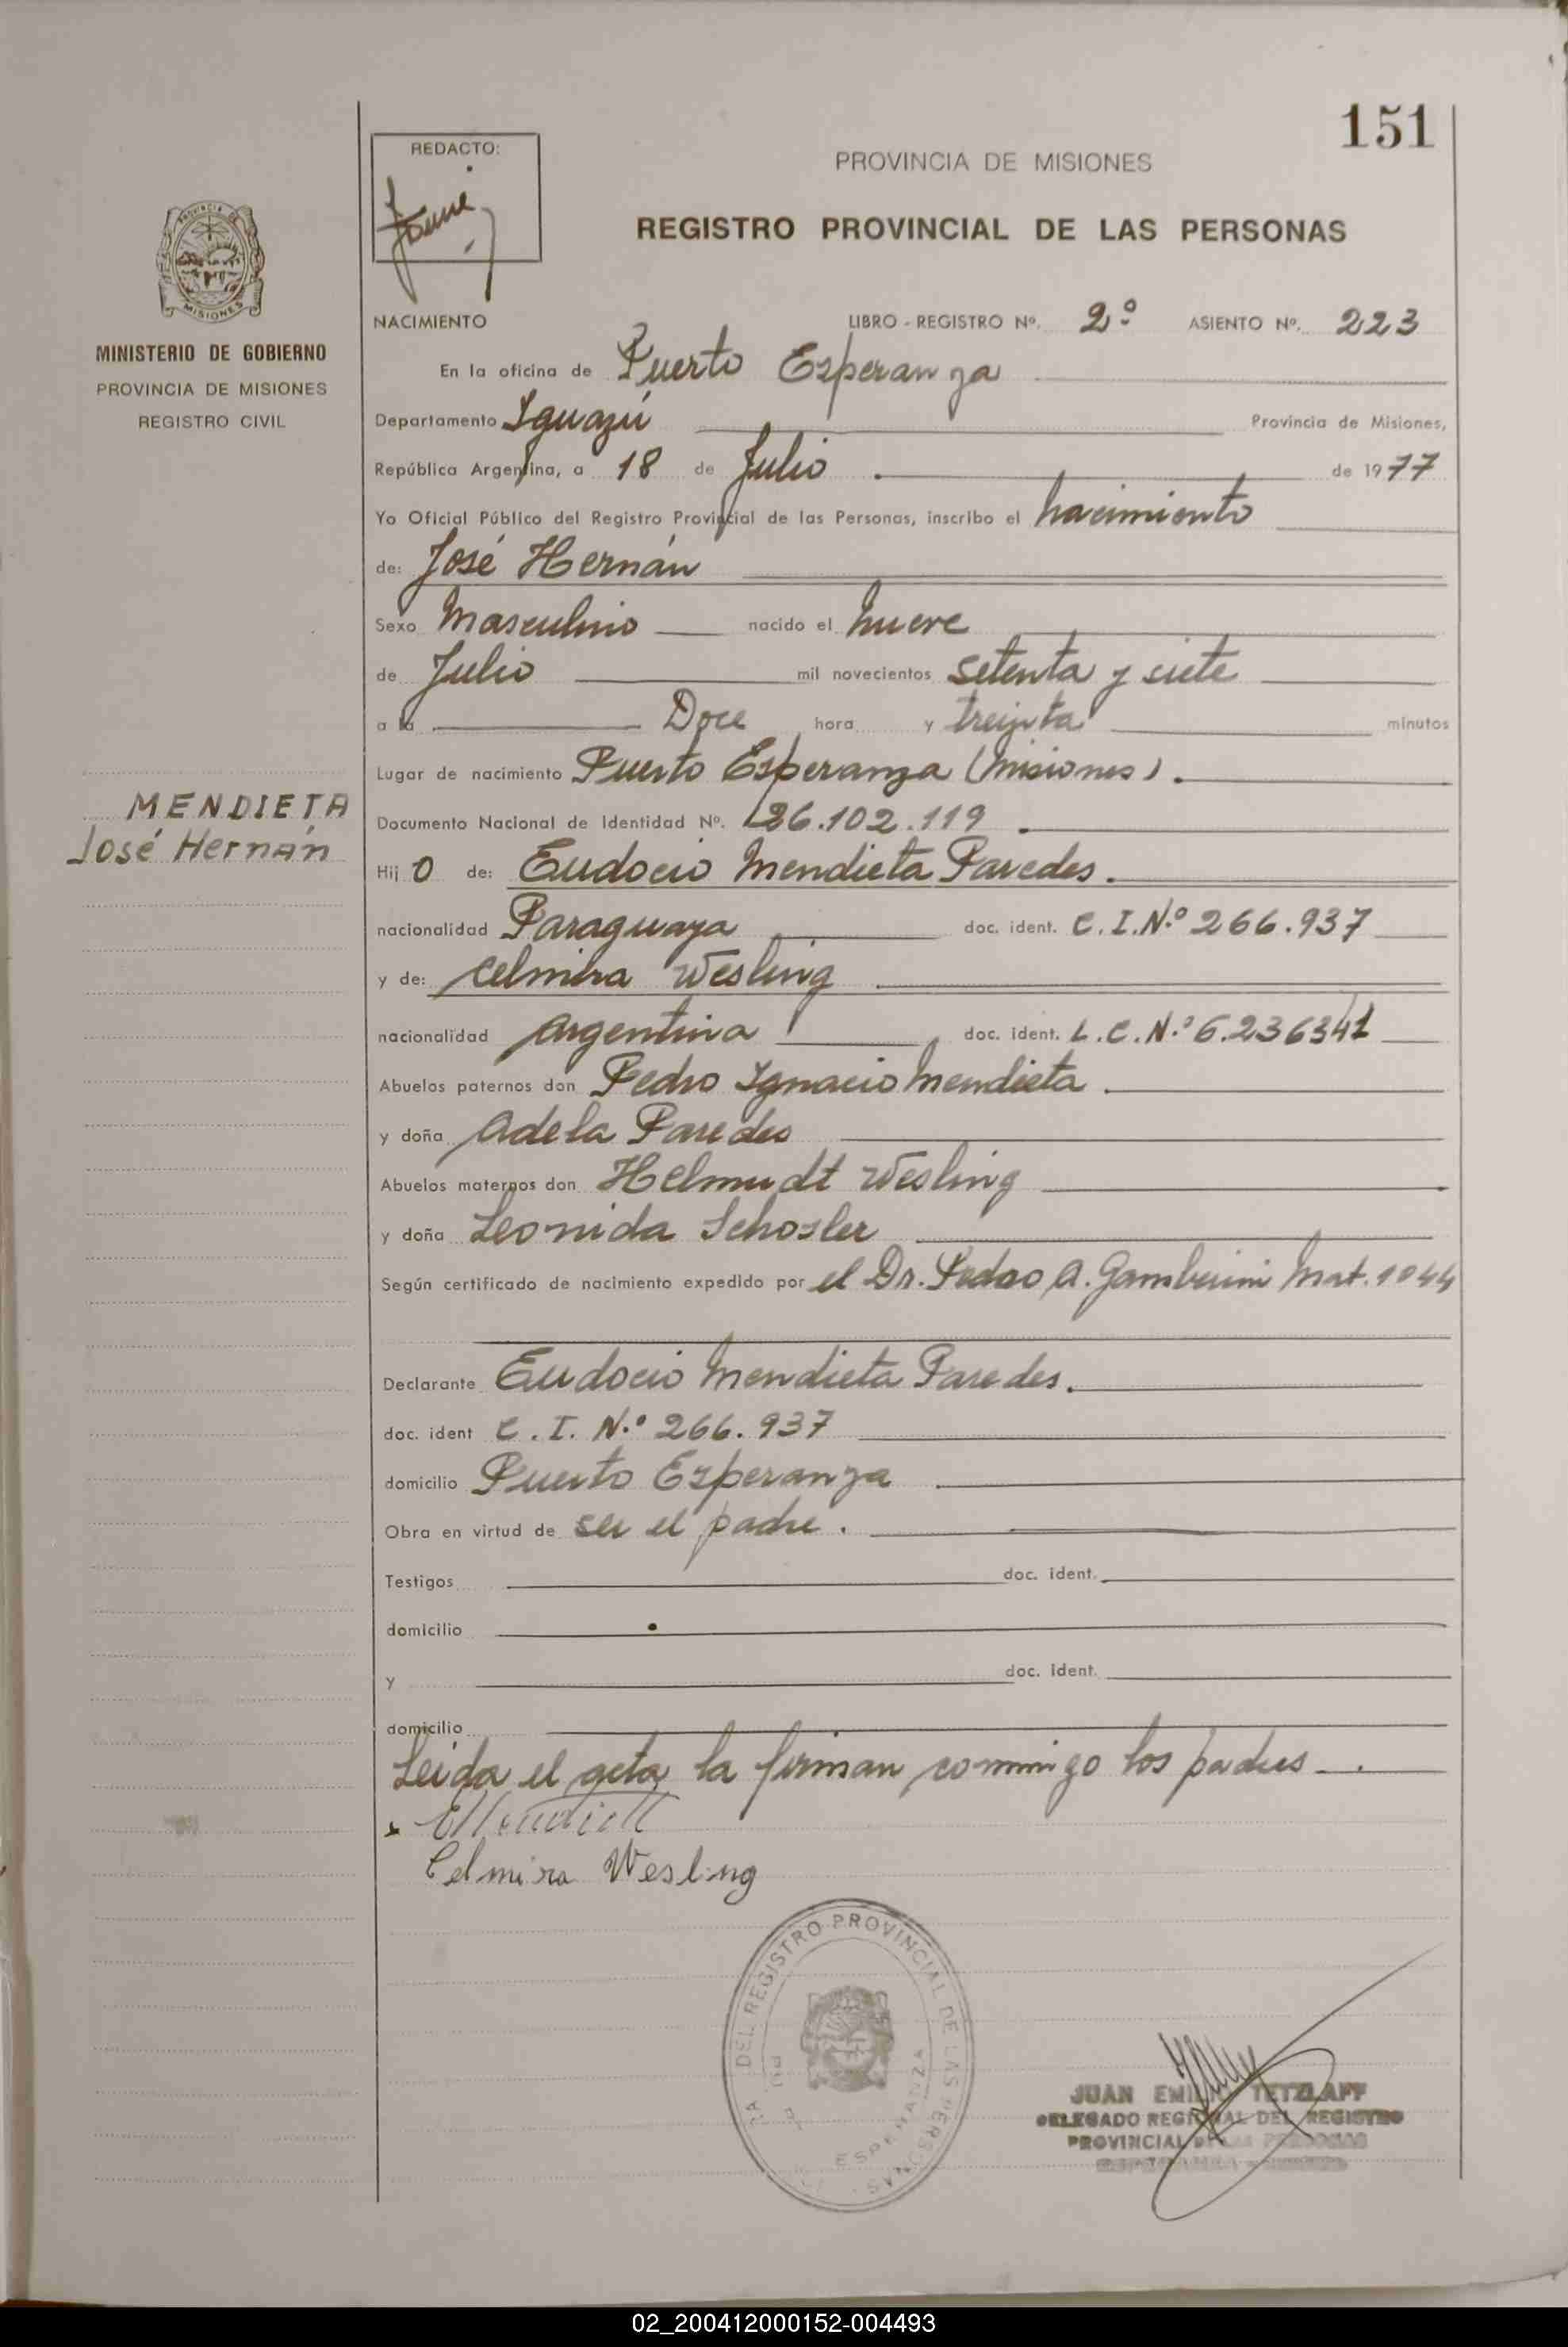 151
REDACTO:
PROVINCIA DE MISIONES
REGISTRO PROVINCIAL DE LAS PERSONAS
PROVINCIA DE
MISIONES
MINISTERIO DE GOBIERNO
PROVINCIA DE MISIONES
REGISTRO CIVIL
NACIMIENTO LIBRO - REGISTRO Nº. 2º ASIENTO Nº. 223
En la oficina de Puerto Esperanza
Departamento Iguazú Provincia de Misiones,
República Argentina, a 18 de Julio de 1977
Yo Oficial Público del Registro Provincial de las Personas, inscribo el nacimiento
de: José Hernán
Sexo Masculino nacido el nueve
de Julio mil novecientos setenta y siete
a la Doce hora y treinta minutos
Lugar de nacimiento Puerto Esperanza (Misiones).
MENDIETA
José Hernán
Documento Nacional de Identidad Nº. 26.102.119
Hijo de: Eudocio Mendieta Paredes.
nacionalidad Paraguaya doc. ident. C.I.N.º 266.937
y de: Celmira Wesling
nacionalidad Argentina doc. ident. L.C.N.º 6.236341
Abuelos paternos don Pedro Ignacio Mendieta
y doña Adela Paredes
Abuelos maternos don Helmudt Wesling
y doña Leonida Schosler
Según certificado de nacimiento expedido por el Dr. Pedro A. Gamberini Mat. 1044
Declarante Eudocio Mendieta Paredes.
doc. ident C.I. N.º 266.937
domicilio Puerto Esperanza
Obra en virtud de ser el padre.
Testigos doc. ident.
domicilio
y doc. ident.
domicilio
Leida el acta la firman conmigo los padres
Celmira Wesling
DEL REGISTRO PROVINCIAL DE LAS PERSONAS
ESPERANZA
JUAN TETZLAFF
DELEGADO REGIONAL DEL REGISTRO
PROVINCIAL DE LAS PERSONAS
02_200412000152-004493